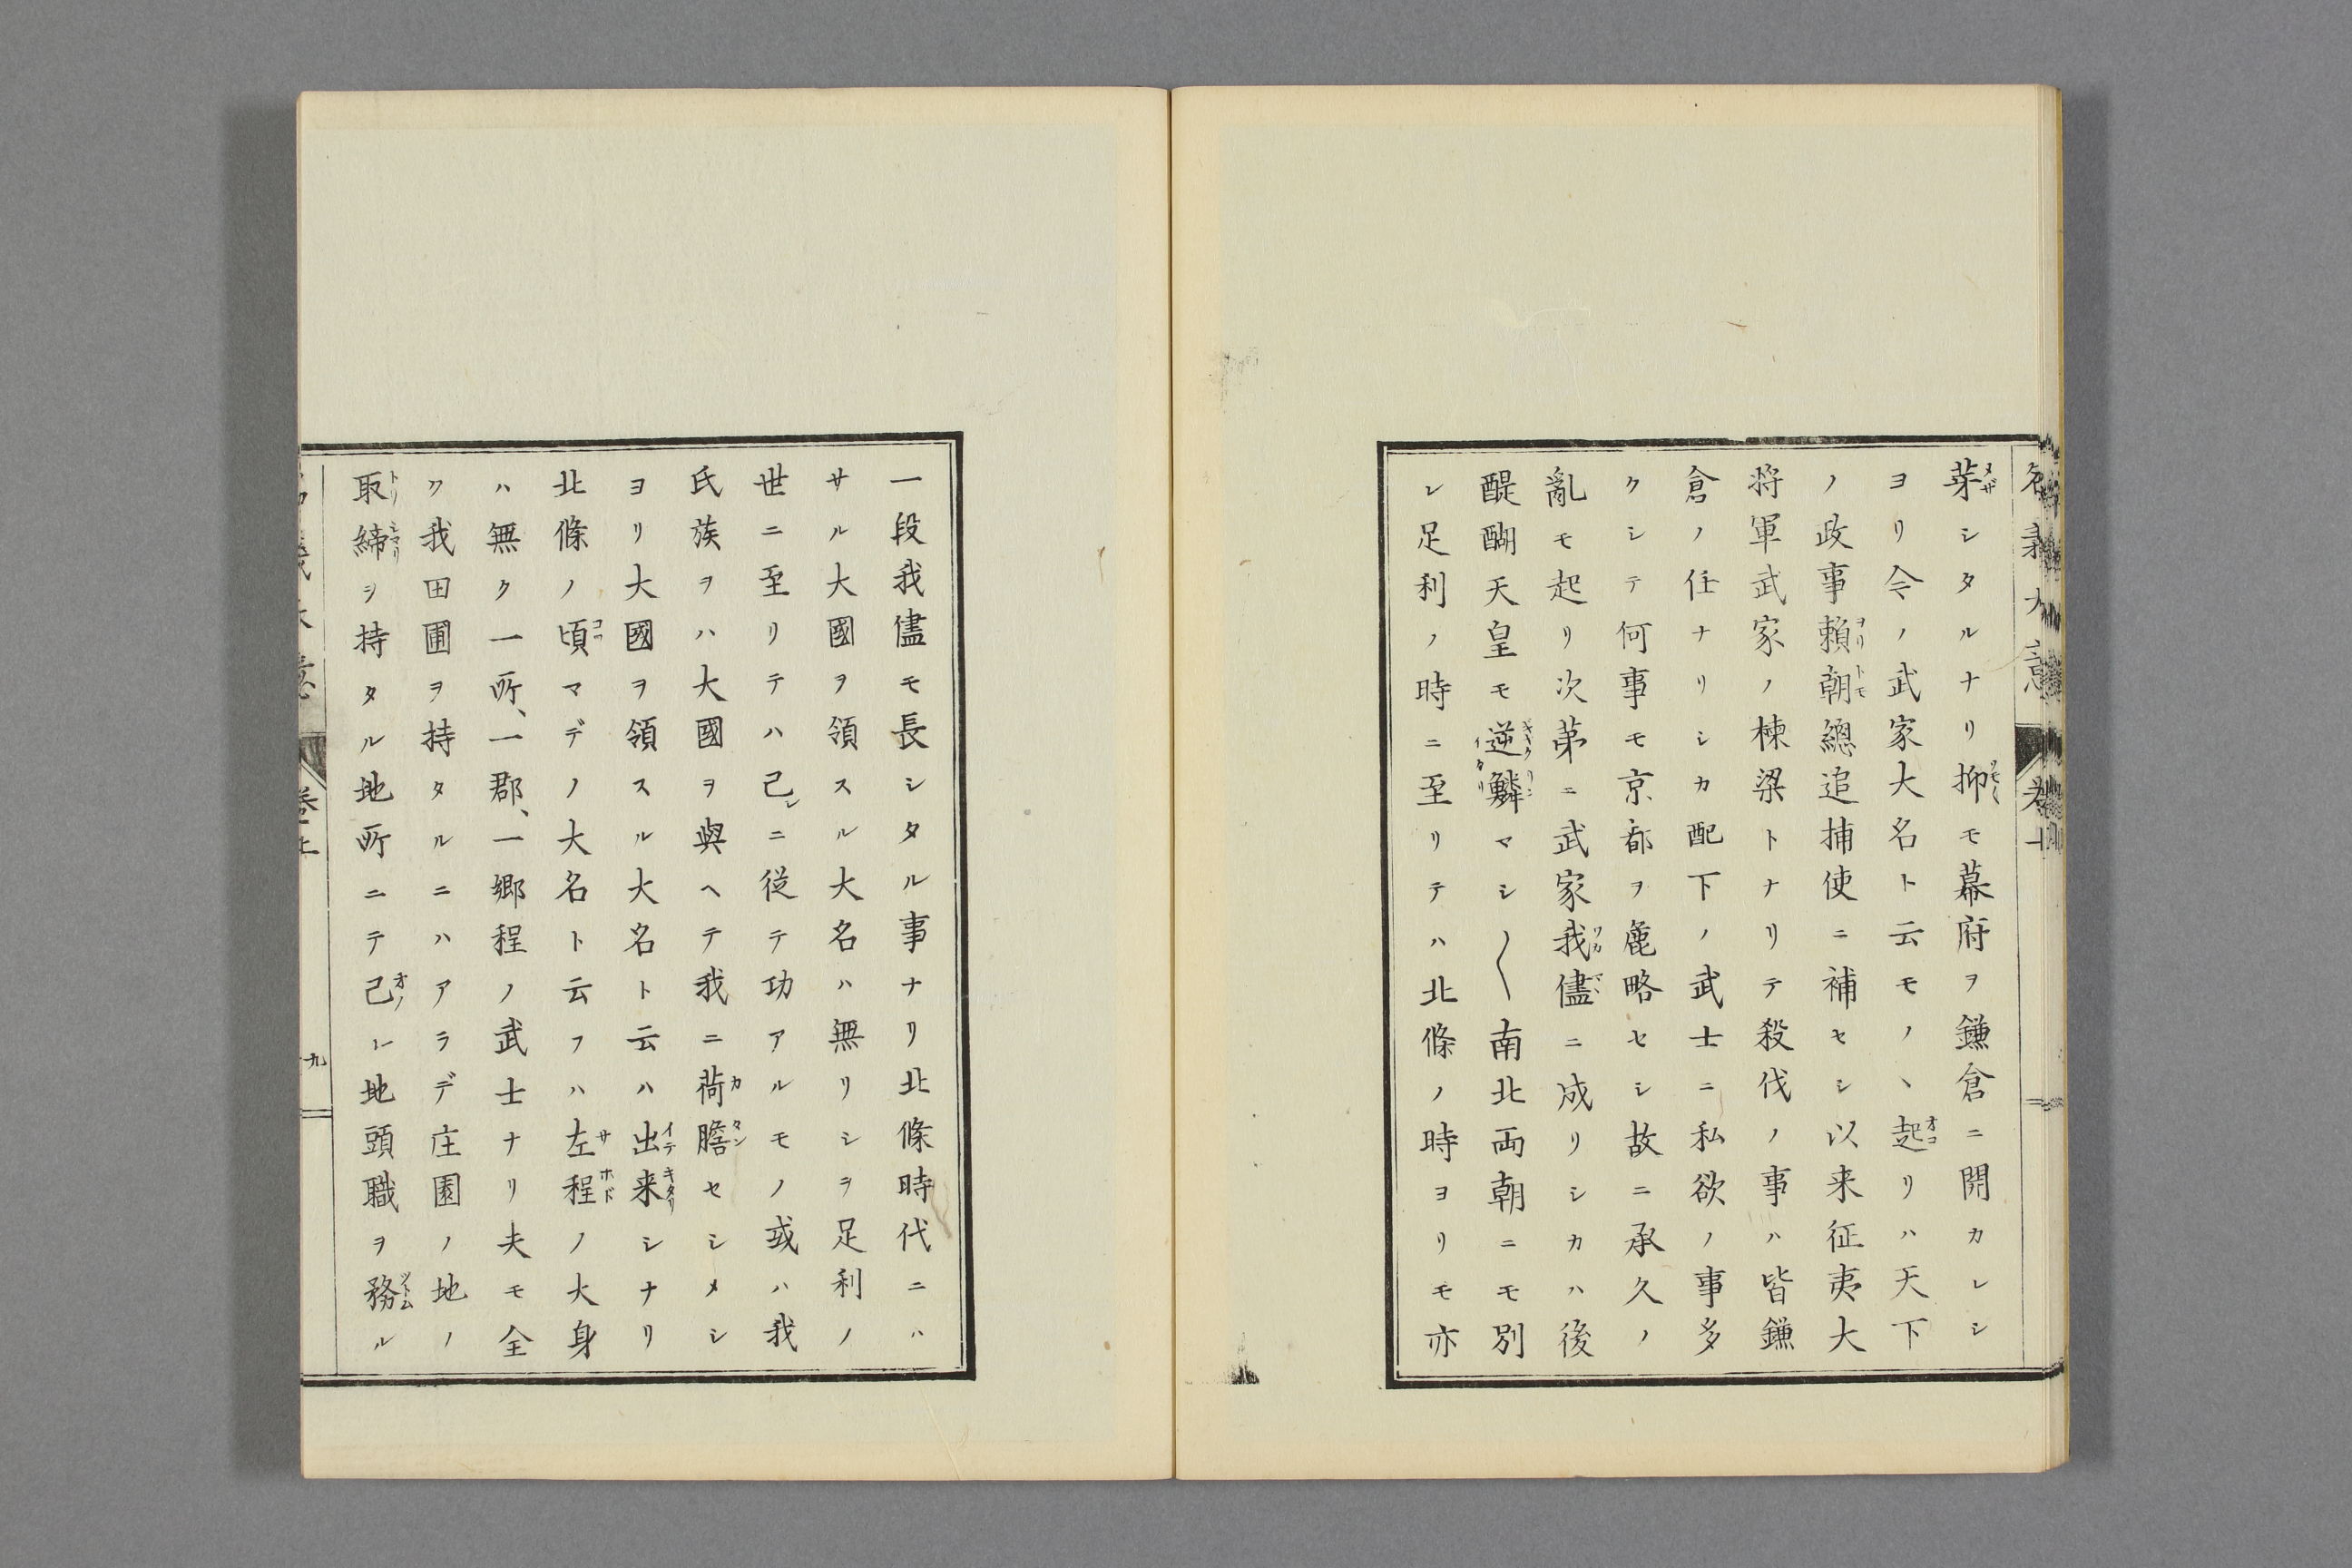 芽シタルナリ抑モ幕府ヲ鎌倉ニ開カレシ
ヨリ今ノ武家大名ト云モノヽ起リハ天下
ノ政事頼朝總追捕使ニ補セシ以来征夷大
将軍武家ノ棟梁トナリテ殺伐ノ事ハ皆鎌
倉ノ任ナリシカ配下ノ武士ニ私欲ノ事多
クシテ何事モ京都ヲ麁略セシ故ニ承久ノ
亂モ起リ次第ニ武家我儘ニ成リシカハ後
醍醐天皇モ逆鱗マシ〱南北両朝ニモ別
レ足利ノ時ニ至リテハ北條ノ時ヨリモ亦
一段我儘モ長シタル事ナリ北條時代ニハ
サル大國ヲ領スル大名ハ無リシヲ足利ノ
世ニ至リテハ己レニ従テ功アルモノ或ハ我
氏族ヲハ大國ヲ與ヘテ我ニ荷膽セシメシ
ヨリ大國ヲ領スル大名ト云ハ出来シナリ
北條ノ頃マデノ大名ト云フハ左程ノ大身
ハ無ク一所、一郡、一郷程ノ武士ナリ夫モ全
ク我田圃ヲ持タルニハアラデ庄園ノ地ノ
取締ヲ持タル地所ニテ己レ地頭職ヲ務ル
九